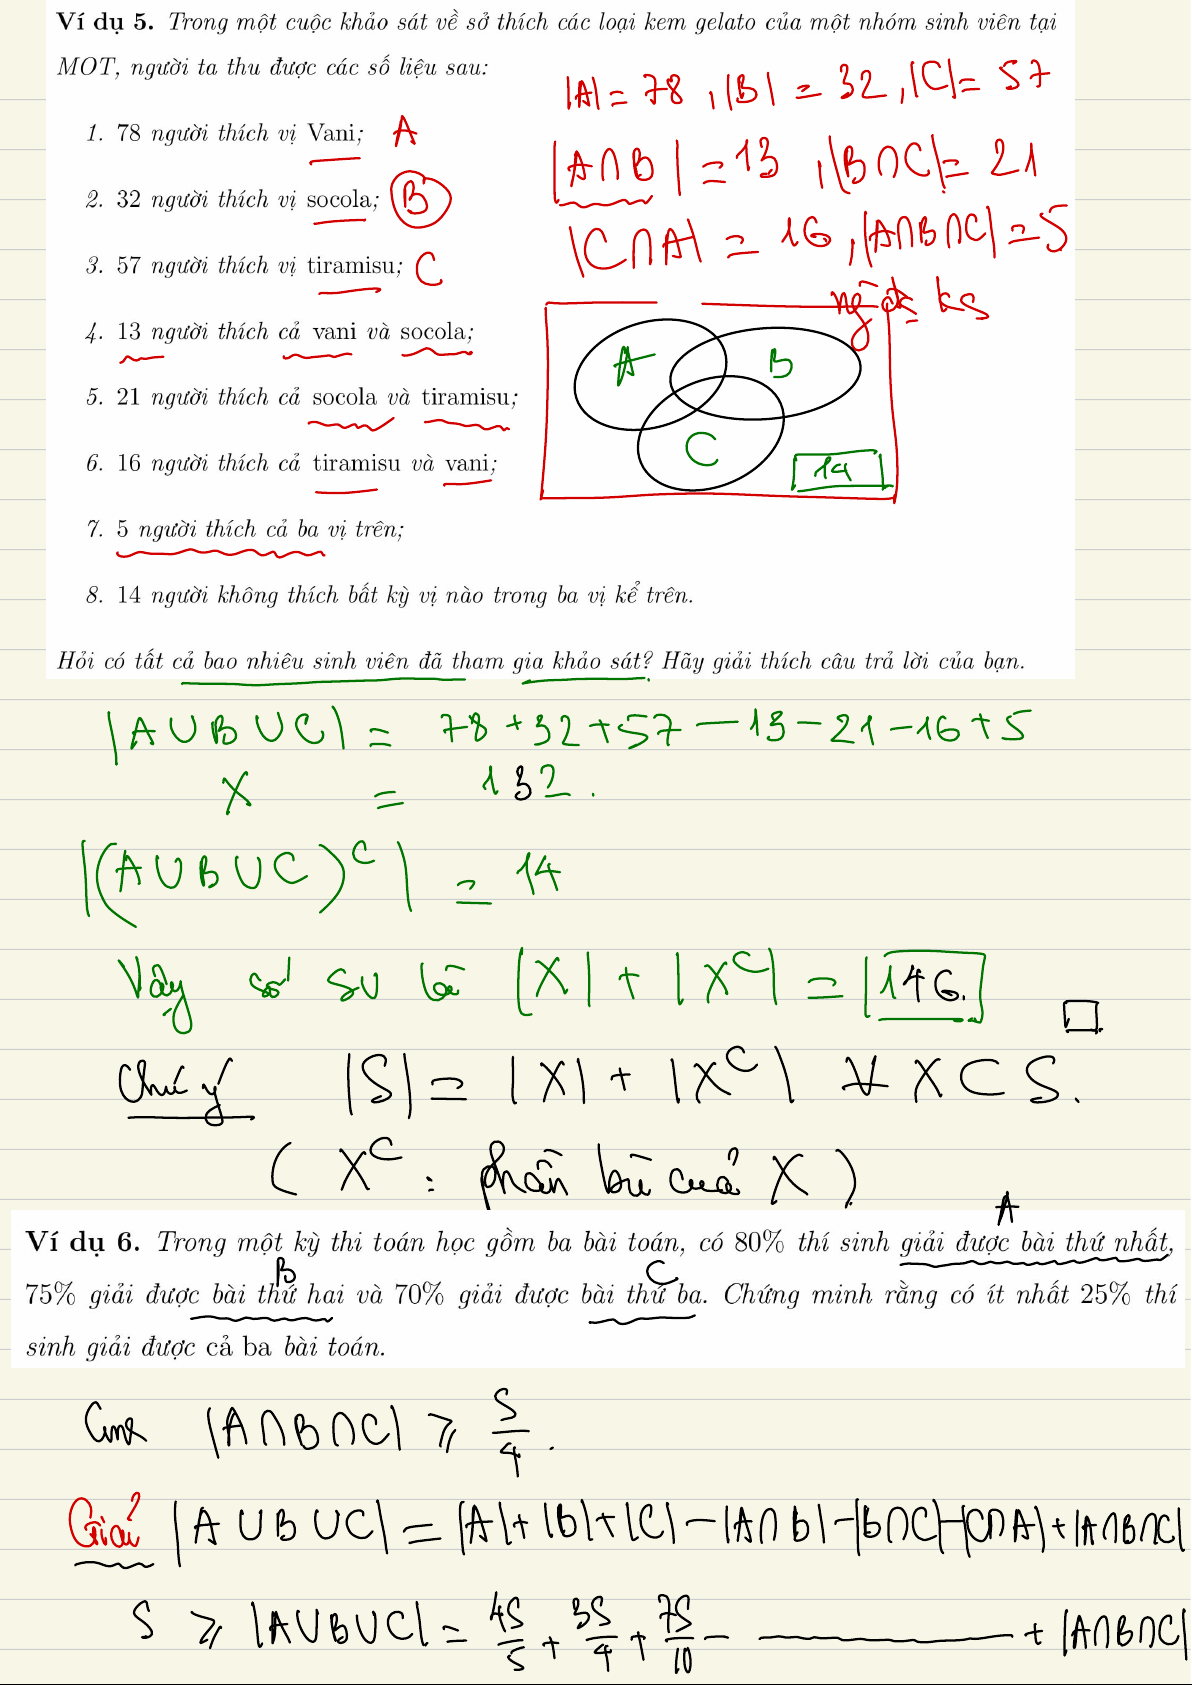 Ví dụ 5. Trong một cuộc khảo sát về sở thích các loại kem gelato của một nhóm sinh viên tại
MOT, người ta thu được các số liệu sau:
|A| = 78, |B| = 32, |C| = 57
1. 78 người thích vị Vani; A
|A∩B| = 13, |B∩C| = 21
2. 32 người thích vị socola; B
|C∩A| = 16, |A∩B∩C| = 5
3. 57 người thích vị tiramisu; C
ks
4. 13 người thích cả vani và socola;
A B
5. 21 người thích cả socola và tiramisu;
C
6. 16 người thích cả tiramisu và vani;
14
7. 5 người thích cả ba vị trên;
8. 14 người không thích bất kỳ vị nào trong ba vị kể trên.
Hỏi có tất cả bao nhiêu sinh viên đã tham gia khảo sát? Hãy giải thích câu trả lời của bạn.
|A∪B∪C| = 78+32+57−13−21−16+5
X = 132.
|(A∪B∪C)^C| = 14
Vậy số SV là |X| + |X^C| = 146.
Chú ý |S| = |X| + |X^C| ∀ X ⊂ S.
(X^C: phần bù của X)
A
Ví dụ 6. Trong một kỳ thi toán học gồm ba bài toán, có 80% thí sinh giải được bài thứ nhất,
B C
75% giải được bài thứ hai và 70% giải được bài thứ ba. Chứng minh rằng có ít nhất 25% thí
sinh giải được cả ba bài toán.
Cmr |A∩B∩C| ≥ S/4.
Giải |A∪B∪C| = |A|+|B|+|C|−|A∩B|−|B∩C|−|C∩A|+|A∩B∩C|
S ≥ |A∪B∪C| = 4S/5 + 3S/4 + 7S/10 − ——— + |A∩B∩C|